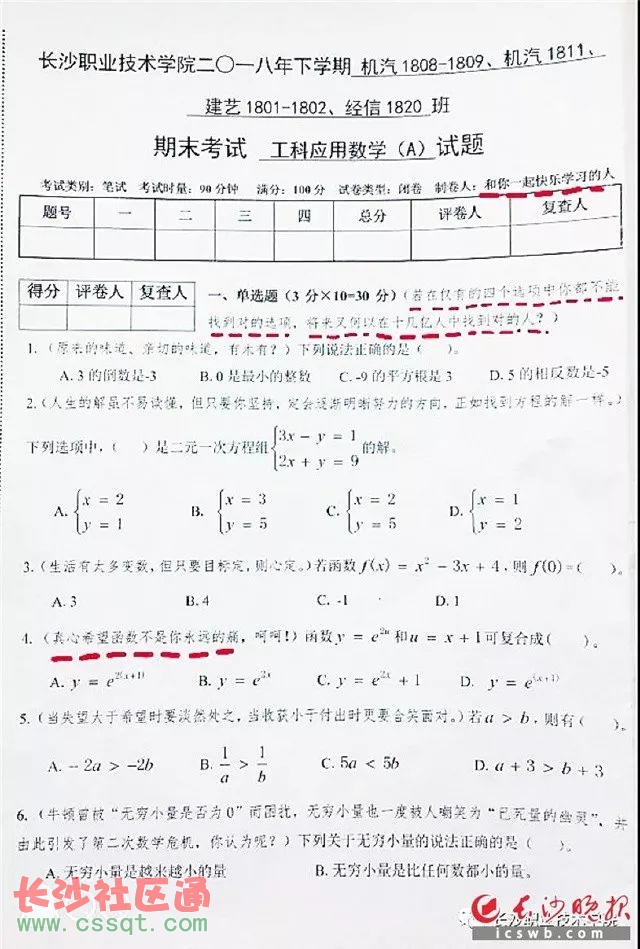 长沙职业技术学院二〇一八年下学期 机汽1808-1809、机汽1811、
建艺1801-1802、经信1820 班
期末考试 工科应用数学(A)试题
考试类别:笔试 考试时量:90分钟 满分:100分 试卷类型:闭卷 制卷人:和你一起快乐学习的人
题号 一 二 三 四 总分 评卷人 复查人
得分 评卷人 复查人
一、单选题(3分×10=30分)(若在仅有的四个选项中你都不能
找到对的选项,将来又何以在十几亿人中找到对的人?)
1.(原来的味道、亲切的味道,有木有?)下列说法正确的是( )。
A. 3的倒数是-3 B. 0是最小的整数 C. -9的平方根是3 D. 5的相反数是-5
2.(人生的解虽不易读懂,但只要你坚持,定会逐渐明晰努力的方向,正如找到方程的解一样。)
下列选项中,( )是二元一次方程组{3x − y = 1 2x + y = 9 的解。
A.{x = 2 y = 1 B.{x = 3 y = 5 C.{x = 2 y = 5 D.{x = 1 y = 2
3.(生活有太多变数,但只要目标定,则心定。)若函数f(x) = x² − 3x + 4,则f(0) = ( )。
A. 3 B. 4 C. -1 D. 1
4.(真心希望函数不是你永远的痛,呵呵!)函数y = e²ᵘ和u = x + 1可复合成( )。
A. y = e²⁽ˣ⁺¹⁾ B. y = e²ˣ C. y = e²ˣ + 1 D. y = e⁽ˣ⁺¹⁾
5.(当失望大于希望时要淡然处之,当收获小于付出时更要含笑面对。)若a > b,则有( )。
A. −2a > −2b B. 1/a > 1/b C. 5a < 5b D. a + 3 > b + 3
6.(牛顿曾被“无穷小量是否为0”而困扰,无穷小量也一度被人嘲笑为“已死量的幽灵”,并
由此引发了第二次数学危机,你认为呢?)下列关于无穷小量的说法正确的是( )。
A. 无穷小量是越来越小的量 B. 无穷小量是比任何数都小的量。
长沙社区通
www.cssqt.com
长沙职业技术学院
长沙晚报
icswb.com